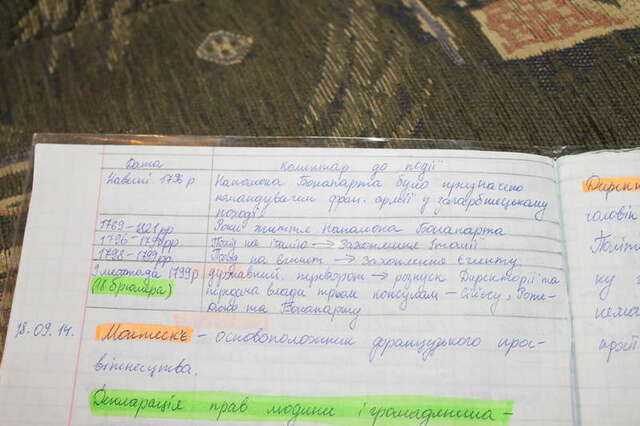 Дата Коментар до події
Навесні 1796 р Наполеона Бонапарта було призначено
командувачем фран. армії у загарбницькому
поході
1769-1821рр Роки життя Наполеона Бонапарта
1796-1797рр Похід на Італію → Захоплення Італії
1798-1799рр Похід на Єгипет → Захоплення Єгипту
9 листопада 1799р державний переворот → розпуск Директорії та
(18 брюмера) передача влади трьом консулам - Сійєсу, Роже-
Дюко та Бонапарту
18.09.14. Монтескʼє - основоположник французького прос-
вітництва.
Декларація прав людини і громадянина -
Дирек
головік
Політи
ку
нема
прої